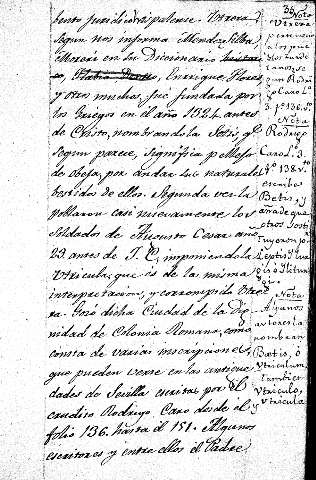 bento juridico ispalense. Utrera
segun nos informa Mendez Silva,
Moreri en su Diccionario
Enrique Florez
y otros muchos, fué fundada por
los Griegos en el año 1324 antes
de Christo, nombrandola Betis, qe
segun parece, significa pellejo
de obeja, por andar sus naturales
bestidos de ellos. Segunda vez la
poblaron casi nuevamente los
Soldados de Augusto Cesar año
23 antes de J. C, imponiendola
Utricula, que es de la misma
interpretacion, y corrompido Utre-
ra. Gozó dicha Ciudad de la Dig-
nidad de Colonia Romana, como
consta de varias inscripciones,
que pueden verse en las antigue-
dades de Sevilla escritas por el
erudito Rodrigo Caro desde el
folio 136. hasta el 151. Algunos
escritores y entre ellos el Padre
Nota
Utrera
pertenecio
a los
segun Rodri-
go Caro L.
3. fo 136. v
Nota
Rodrigo
Caro L. 3
fo 138 vto
escribe
Betis, y
añade que
otros
Nota
Algunos
autores la
nombran
Bætis, ó
Utriculum,
tambien
Utriculo,
y Utricula